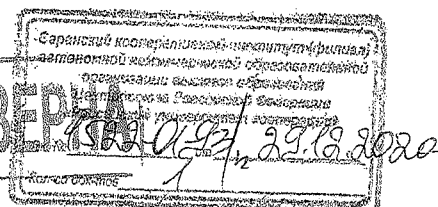 Саранский кооперативный институт (филиал)
автономной некоммерческой образовательной
организации высшего образования
Центросоюза Российской Федерации
Российский университет кооперации
ВЕРНА
29.12.2020
1
Кол-во док-тов